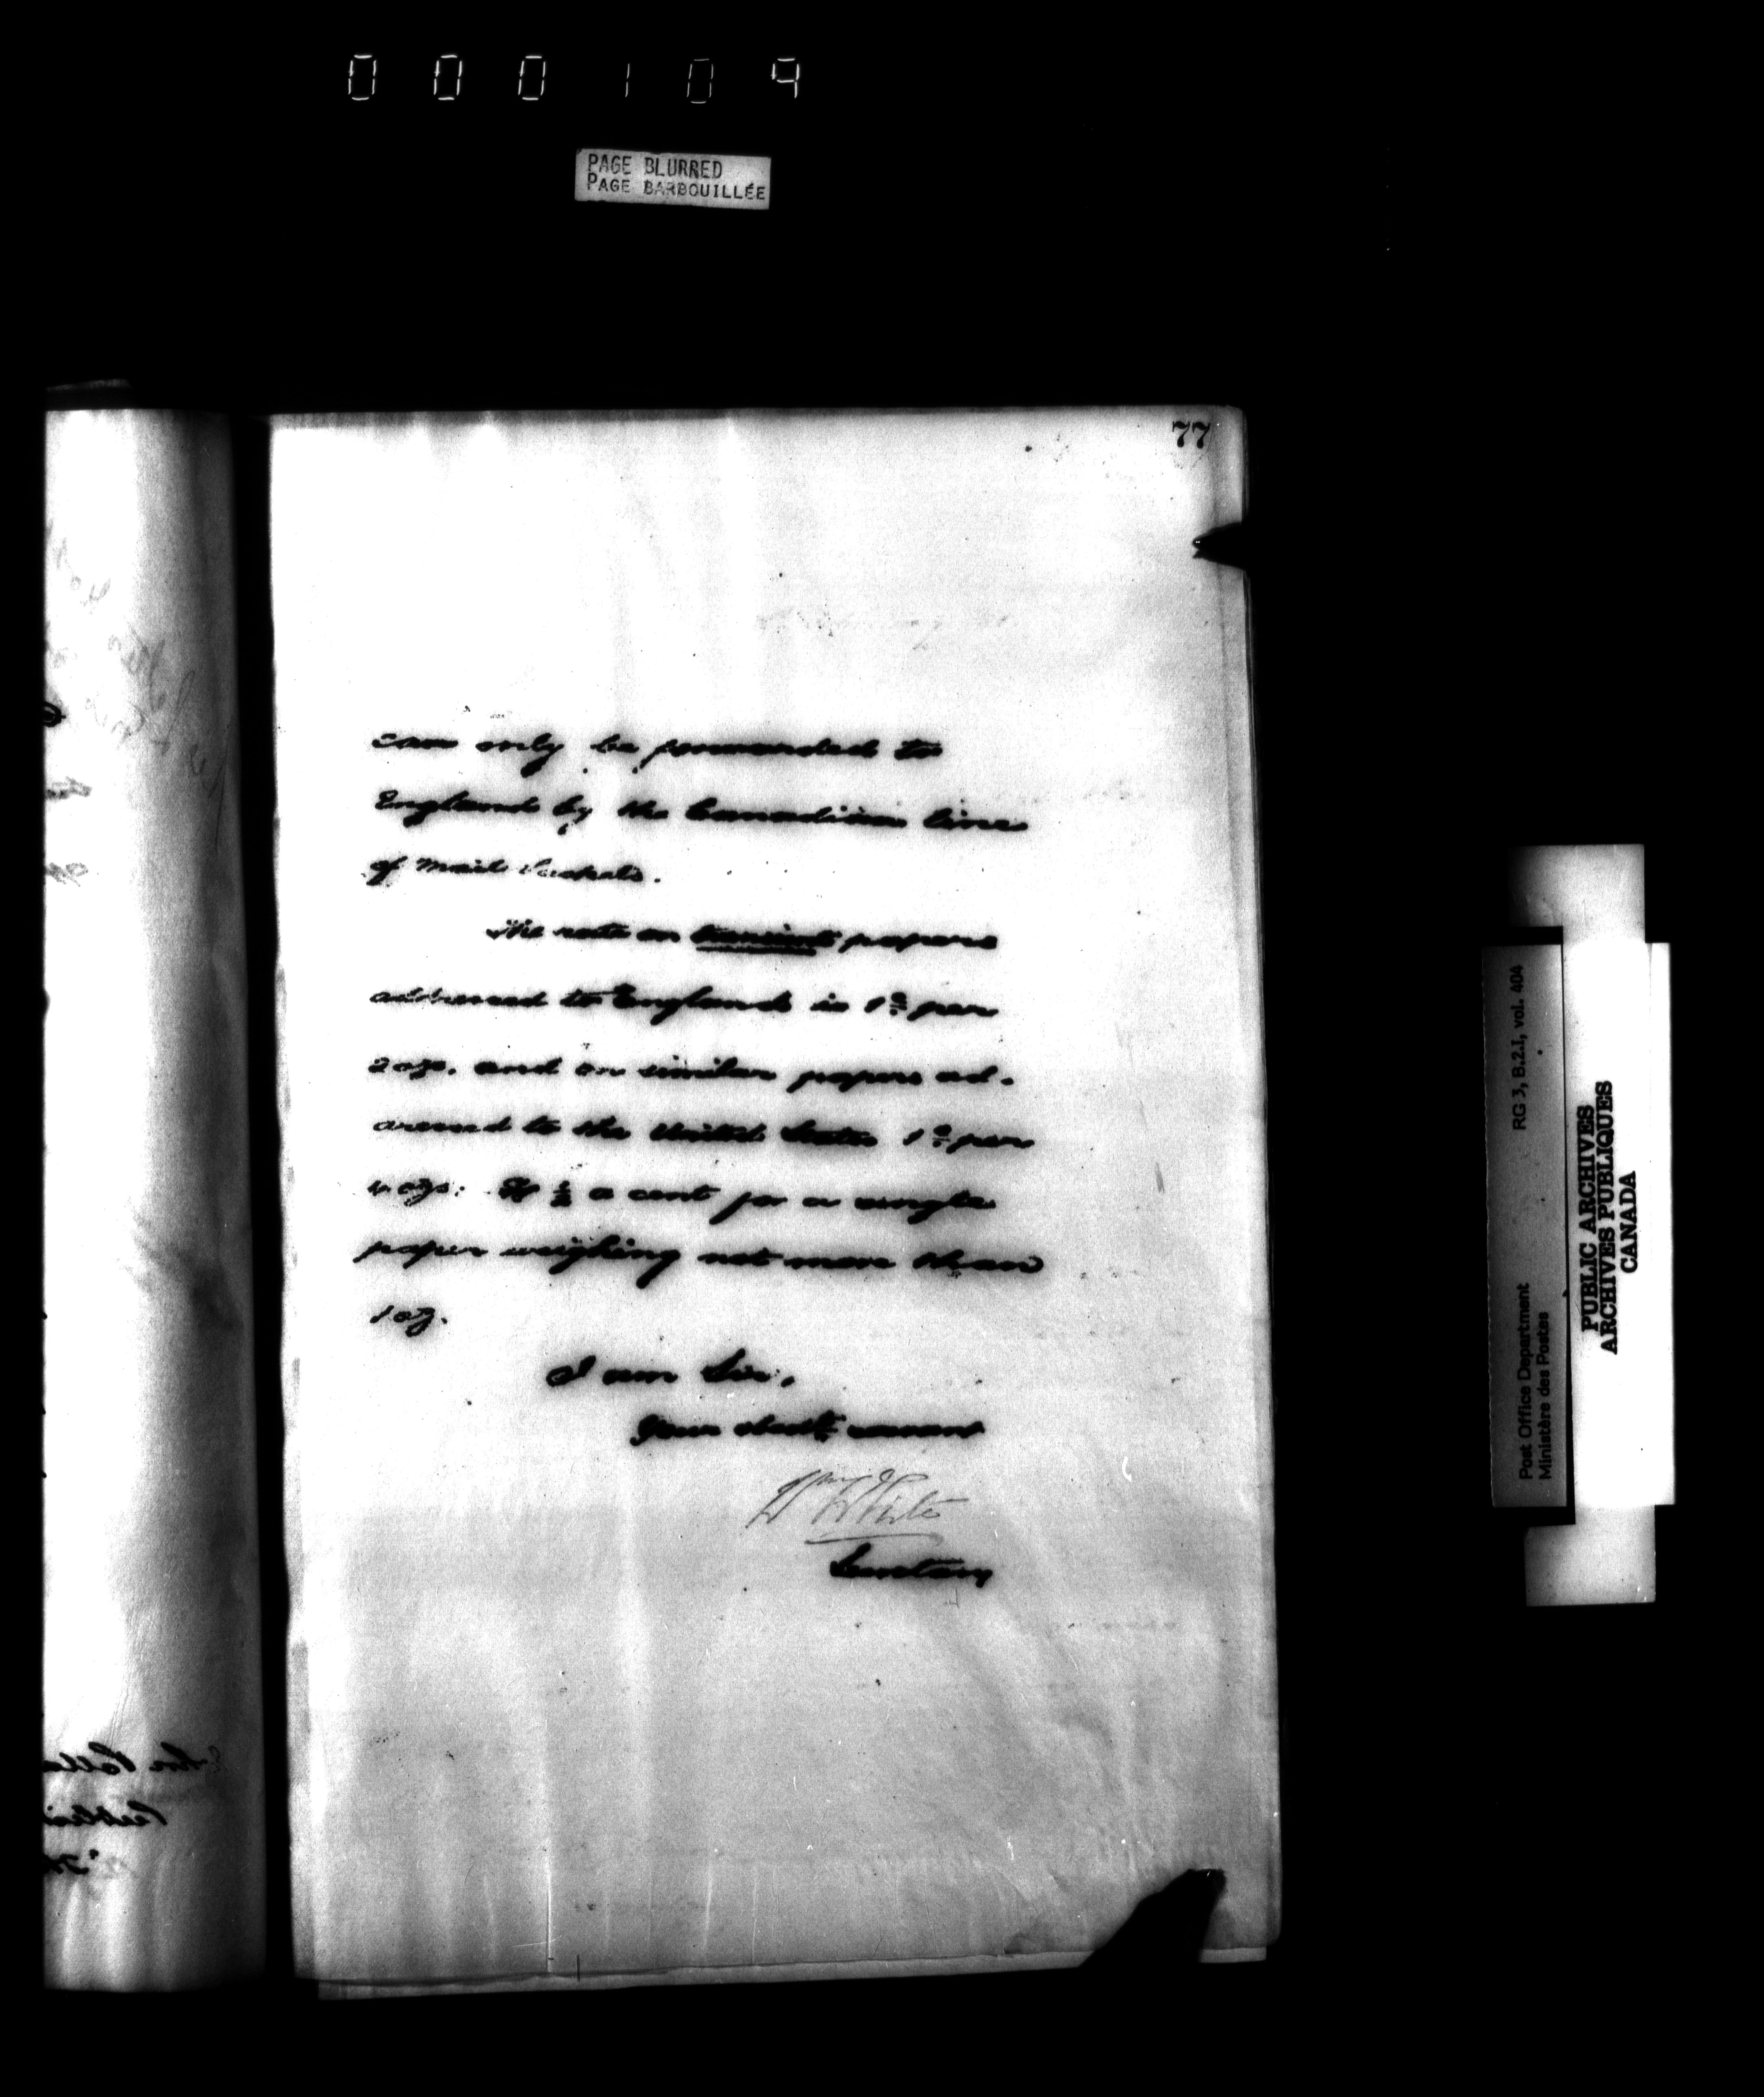 000109
PAGE BLURRED
PAGE BARBOUILLÉE
77
can only be forwarded to
England by the Canadian line
of Mail Packets.
The rate on transient papers
addressed to England is 1c per
2 ozs. and on similar papers ad-
dressed to the United States 1c per
4 ozs: or ½ a cent for a single
paper weighing not more than
1 oz.
I am Sir,
Your obedt servant
Wm White
Secretary
RG 3, B.2.I, vol. 404
Post Office Department
Ministère des Postes
PUBLIC ARCHIVES
ARCHIVES PUBLIQUES
CANADA